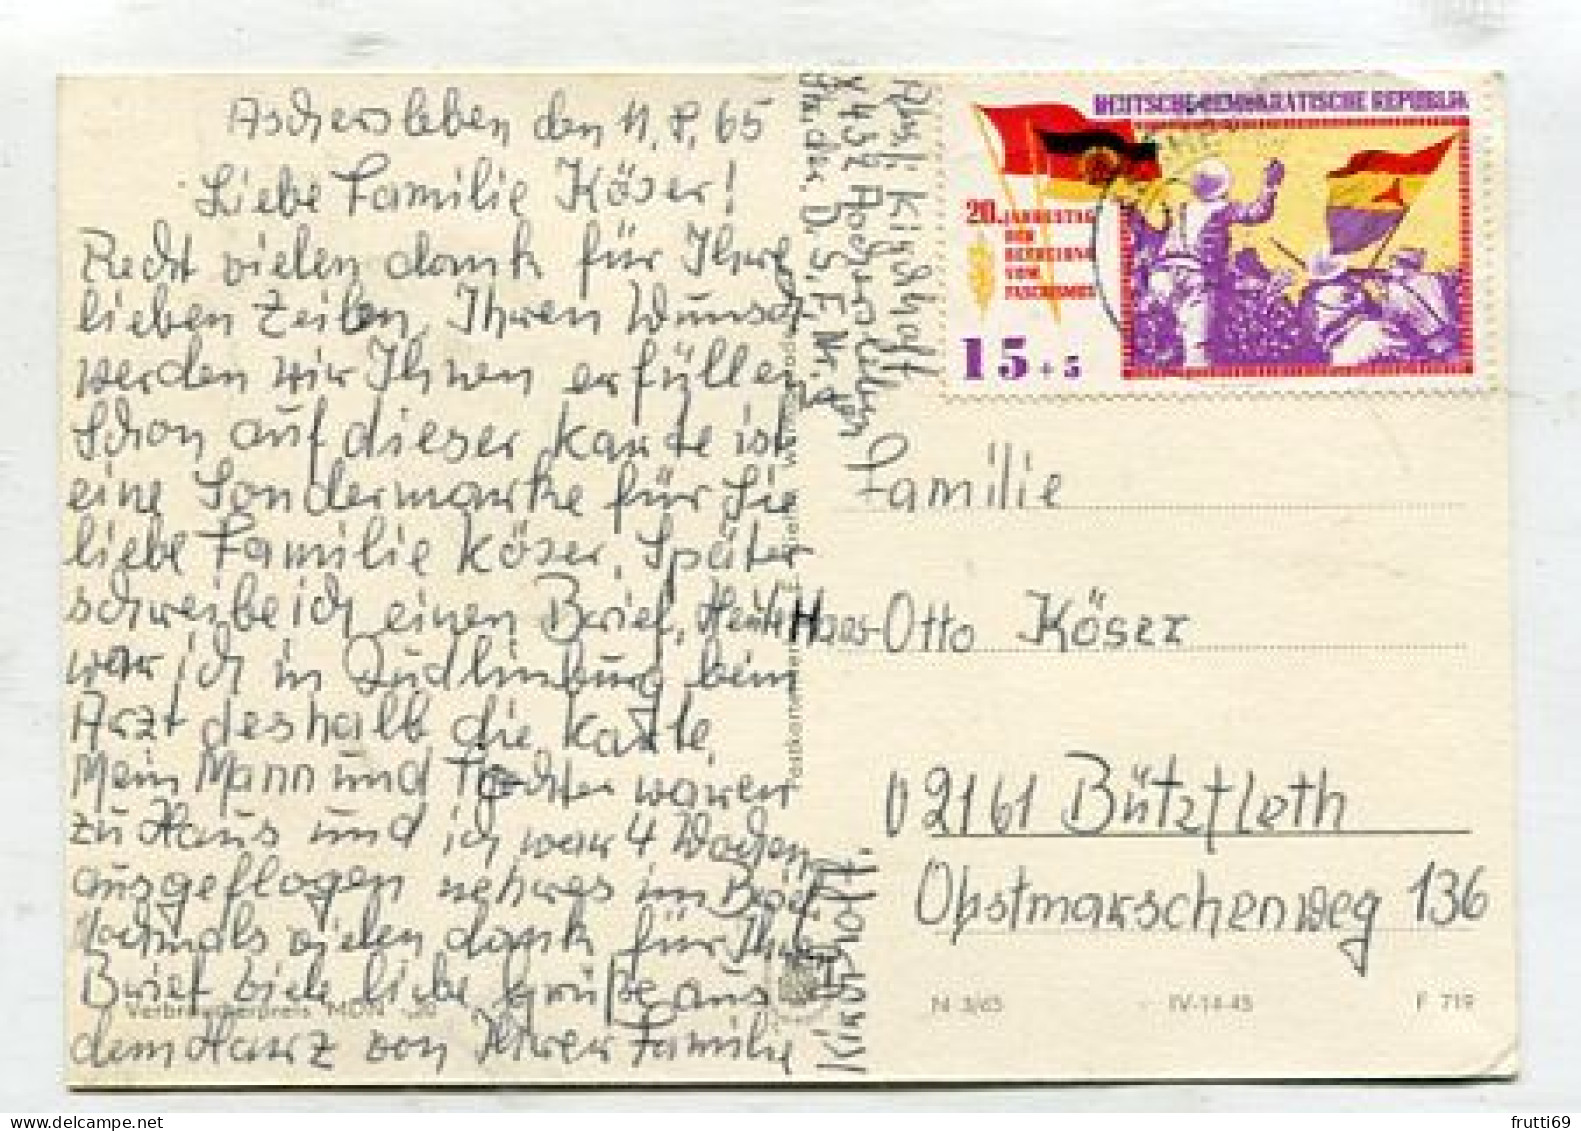 Aschersleben den 11.8.65
Liebe Familie Köser!
Recht vielen dank für Ihre
lieben Zeilen, Ihren Wunsch
werden wir Ihnen erfüllen
Schon auf dieser Karte ist
eine Sondermarke für Sie
liebe Familie Köser. Später
schreibe ich einen Brief, Heute
war ich in Qudlinburg beim
Arzt deshalb die Karte,
Mein Mann und Tochter waren
zu Haus und ich war 4 Wochen
ausgeflogen im Brief.
Nochmals vielen dank für Ihren
Brief viele liebe grüße aus
dem Harz von Ihrer Familie
Kirchhoff
Abs: Kirchhoff
X 432 Aschersleben
Str. der D.S.F. Nr.
DEUTSCHE DEMOKRATISCHE REPUBLIK
20. JAHRESTAG
DER
BEFREIUNG
VOM
FASCHISMUS
15+5
Familie
Hans-Otto Köser
V 2161 Bützfleth
Obstmarschenweg 136
Verbraucherpreis MDN -,20
N 3/65
IV-14-45
F 719
frutti69